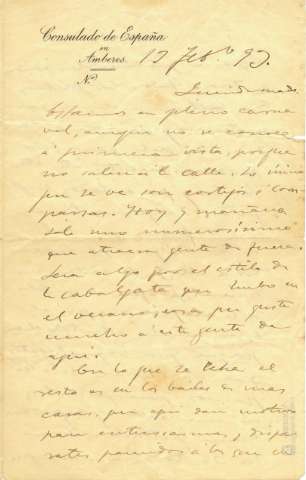 Consulado de España
en
Amberes.
Nº
13 Feb.º 93.
Estamos en pleno carna
val, aunque no se conoce
á primera vista, porque
no salen á la calle. Lo único
que se ve son cortejos ó com
parsas. Hoy y mañana
sale uno numerosísimo
que atraerá gente de fuera.
Será algo por el estilo de
la cabalgata que hubo en
el verano, cosa que gusta
mucho á esta gente de
aquí.
En lo que se echa el
resto es en los bailes de mas
caras, que aquí dan motivo
para entusiasmar y dispa
rates parecidos á los que